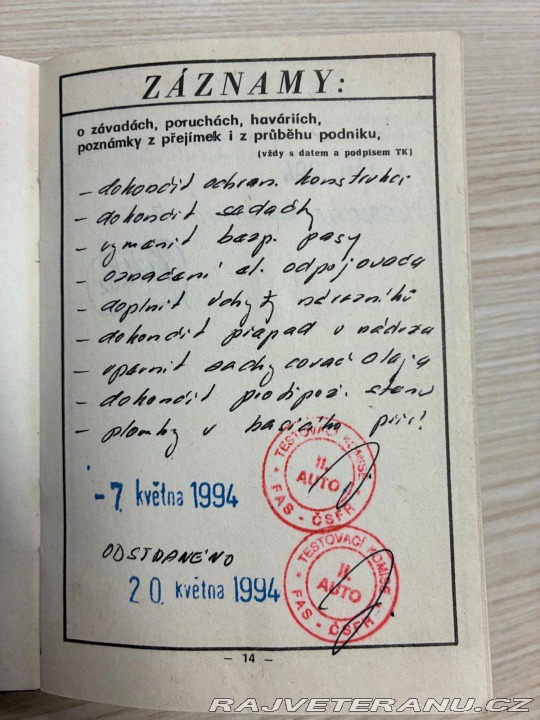 ZÁZNAMY:
o závadách, poruchách, haváriích,
poznámky z přejímek i z průběhu podniku,
(vždy s datem a podpisem TK)
- dokončit ochran. konstrukci
- dokončit sedačky
- vyměnit bezp. pasy
- označení el. odpojovače
- doplnit úchyty nárazníků
- dokončit přepad v nádrže
- upevnit zachycovač oleje
- dokončit protipož. stěnu
- plomby v hasicího přís.
TESTOVACÍ KOMISE
II.
AUTO
FAS - ČSFR
-7. května 1994
ODSTRANĚNO
20. května 1994
TESTOVACÍ KOMISE
II.
AUTO
FAS - ČSFR
- 14 -
RAJVETERANU.CZ